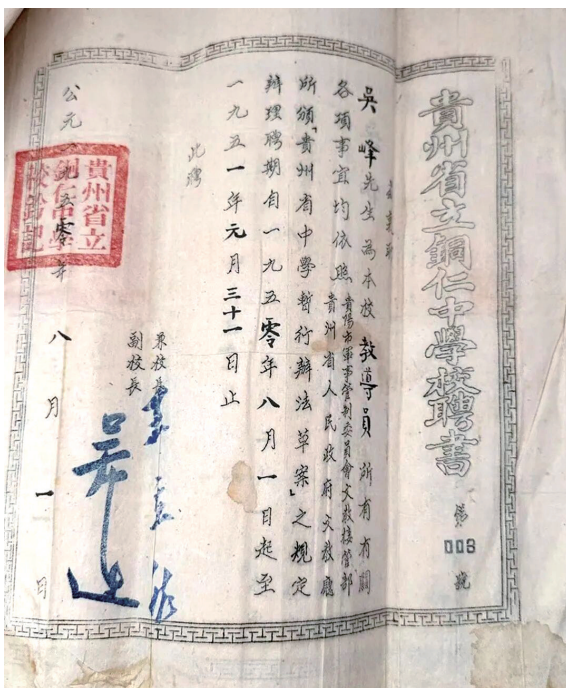 貴州省立銅仁中學校聘書
第 003 號
吳 峰先生為本校教導員所有有關
各項事宜均依照貴陽市軍事管制委員會文教接管部
貴州省人民政府文教廳
所頒「貴州省中學暫行辦法草案」之規定
辦理聘期自一九五零年八月一日起至
一九五一年元月三十一日止
此聘
兼校長
副校長
公元一九五零年八月一日
貴州省立
銅仁中學
校鈐記